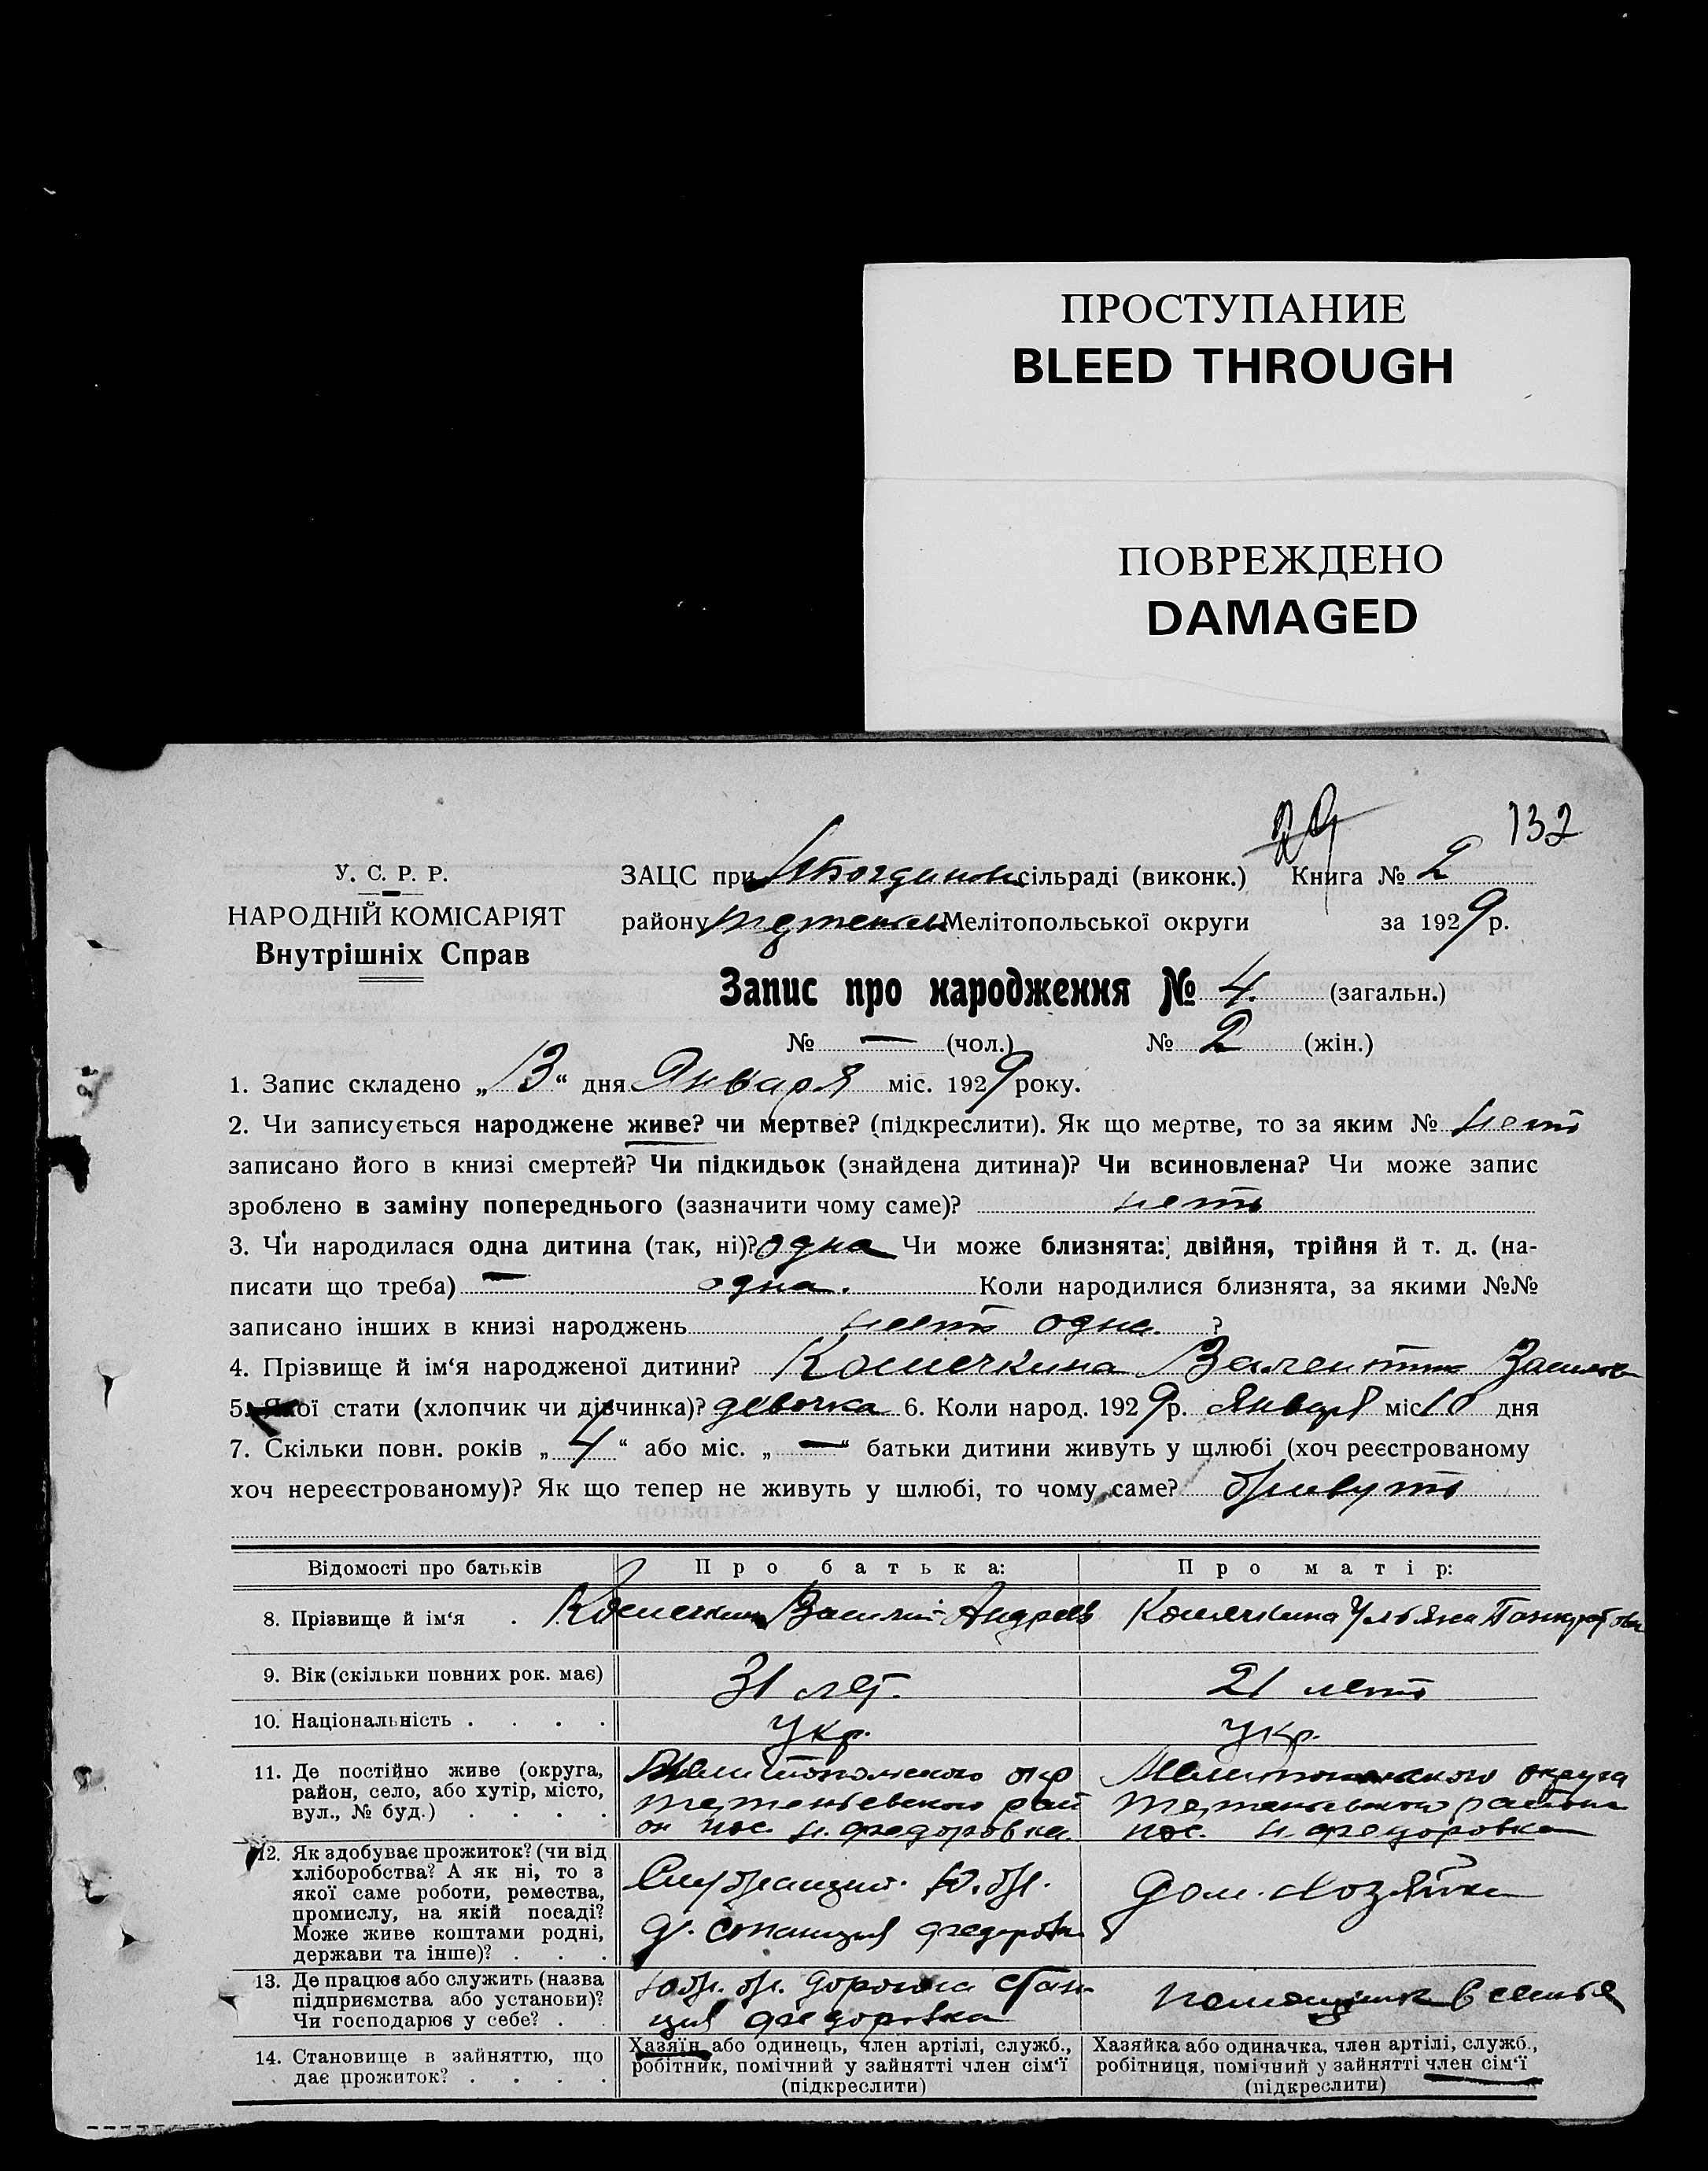 ПРОСТУПАНИЕ
BLEED THROUGH
ПОВРЕЖДЕНО
DAMAGED
29 132
У. С. Р. Р.
НАРОДНІЙ КОМІСАРІЯТ
Внутрішніх Справ
ЗАЦС при сільраді (виконк.) Книга № 2
району Мелітопольської округи за 1929 р.
Запис про народження № 4. (загальн.)
№ — (чол.) № 2 (жін.)
1. Запис складено „13“ дня Января міс. 1929 року.
2. Чи записується народжене живе? чи мертве? (підкреслити). Як що мертве, то за яким № нетъ
записано його в книзі смертей? Чи підкидьок (знайдена дитина)? Чи всиновлена? Чи може запис
зроблено в заміну попереднього (зазначити чому саме)? нетъ
3. Чи народилася одна дитина (так, ні)? одна Чи може близнята: двійня, трійня й т. д. (на-
писати що треба) — одна. Коли народилися близнята, за якими №№
записано інших в книзі народжень нетъ одна ?
4. Прізвище й ім‘я народженої дитини?
5. Якої стати (хлопчик чи дівчинка)? девочка 6. Коли народ. 1929 р. Января міс 10 дня
7. Скільки повн. років „4“ або міс. „—“ батьки дитини живуть у шлюбі (хоч реєстрованому
хоч нереєстрованому)? Як що тепер не живуть у шлюбі, то чому саме? живутъ
Відомості про батьків Про батька: Про матір:
8. Прізвище й ім‘я . Василий Андреев Ульяна
9. Вік (скільки повних рок. має) 31 лет. 21 летъ
10. Національність . . . . укр. укр.
11. Де постійно живе (округа,
район, село, або хутір, місто,
вул., № буд.) . . . .
Мелитопольского окр
рай
он пос. н. федоровка
Мелитопольского округа
района
пос. н федоровка
12. Як здобуває прожиток? (чи від
хліборобства? А як ні, то з
якої саме роботи, ремества,
промислу, на якій посаді?
Може живе коштами родні,
держави та інше)? . . .
Ю. ж.
д. станция федоровк
дом. хозяйка
13. Де працює або служить (назва
підприємства або установи)?
Чи господарює у себе? . .
дорога стан-
ция федоровка
в семье
14. Становище в зайняттю, що
дає прожиток? . . . .
Хазяїн або одинець, член артілі, служб.,
робітник, помічний у зайнятті член сім‘ї
(підкреслити)
Хазяйка або одиначка, член артілі, служб.,
робітниця, помічний у зайнятті член сім‘ї
(підкреслити)